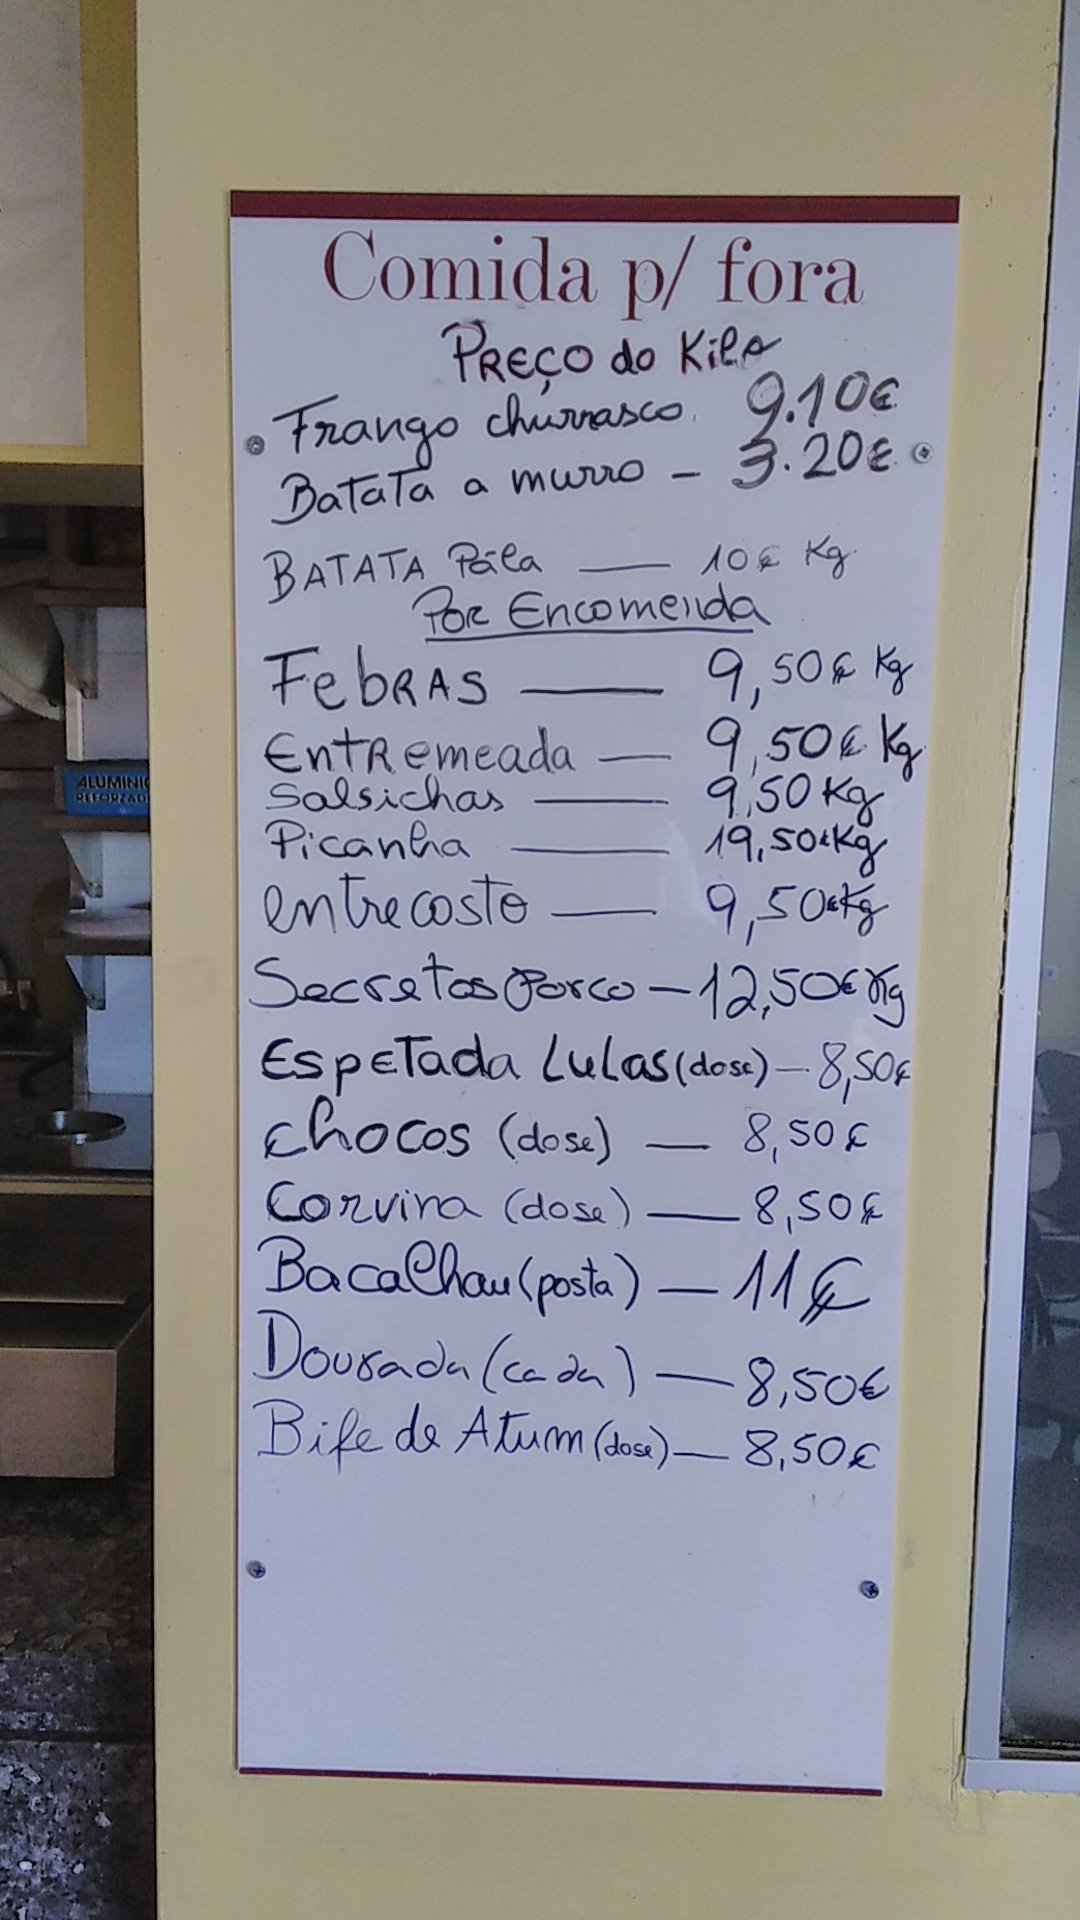 Comida p/ fora
PREÇO do Kilo
Frango churrasco. 9.10€
BaTaTa a murro - 3.20€
BATATA Pála — 10€ Kg
POR Encomenda
FebRAS — 9,50€ Kg
EntRemeada — 9,50€ Kg
ALUMINIO
REFORZAD
Salsichas — 9,50 Kg
Picanha — 19,50€Kg
entrecosto — 9,50€Kg
Secretos Porco — 12,50€ Kg
EspeTada Lulas (dose) — 8,50€
chocos (dose) — 8,50€
Corvina (dose) — 8,50€
Bacalhau (posta) — 11€
Dourada (cada) — 8,50€
Bife de Atum (dose) — 8,50€